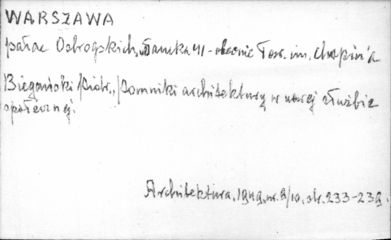 WARSZAWA
pałac Ostrogskich, Tamka 41 - obecnie Tow. im. Chopin'a
Biegański Piotr., Pomniki architektury w naszej służbie
społecznej.
Architektura, 1949, nr. 9/10, str. 233-238.